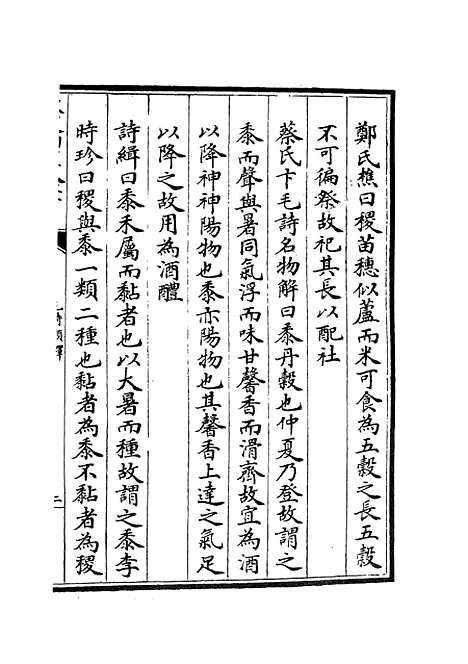 鄭氏樵曰稷苗穗似蘆而米可食為五穀之長五穀
不可徧祭故祀其長以配社
蔡氏卞毛詩名物解曰黍丹穀也仲夏乃登故謂之
黍而聲與暑同氣浮而味甘馨香而滑齊故宜為酒
以降神神陽物也黍亦陽物也其馨香上達之氣足
以降之故用為酒醴
詩緝曰黍禾屬而黏者也以大暑而種故謂之黍李
時珍曰稷與黍一類二種也黏者為黍不黏者為稷
三